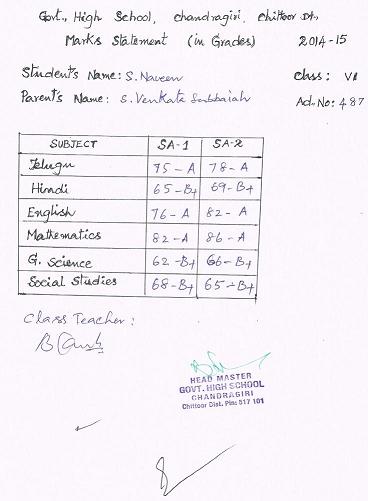 Govt., High School, Chandragiri, Chittoor Dt.,
Marks Statement (in Grades) 2014-15
Student's Name: S. Naveen Class: VI
Parent's Name: S. Venkata Subbaiah Ad.No: 487
SUBJECT SA-1 SA-2
Telugu 75-A 78-A
Hindi 65-B+ 69-B+
English 76-A 82-A
Mathematics 82-A 86-A
G. Science 62-B+ 66-B+
Social Studies 68-B+ 65-B+
Class Teacher:
HEAD MASTER
GOVT. HIGH SCHOOL
CHANDRAGIRI
Chittoor Dist. Pin: 517 101